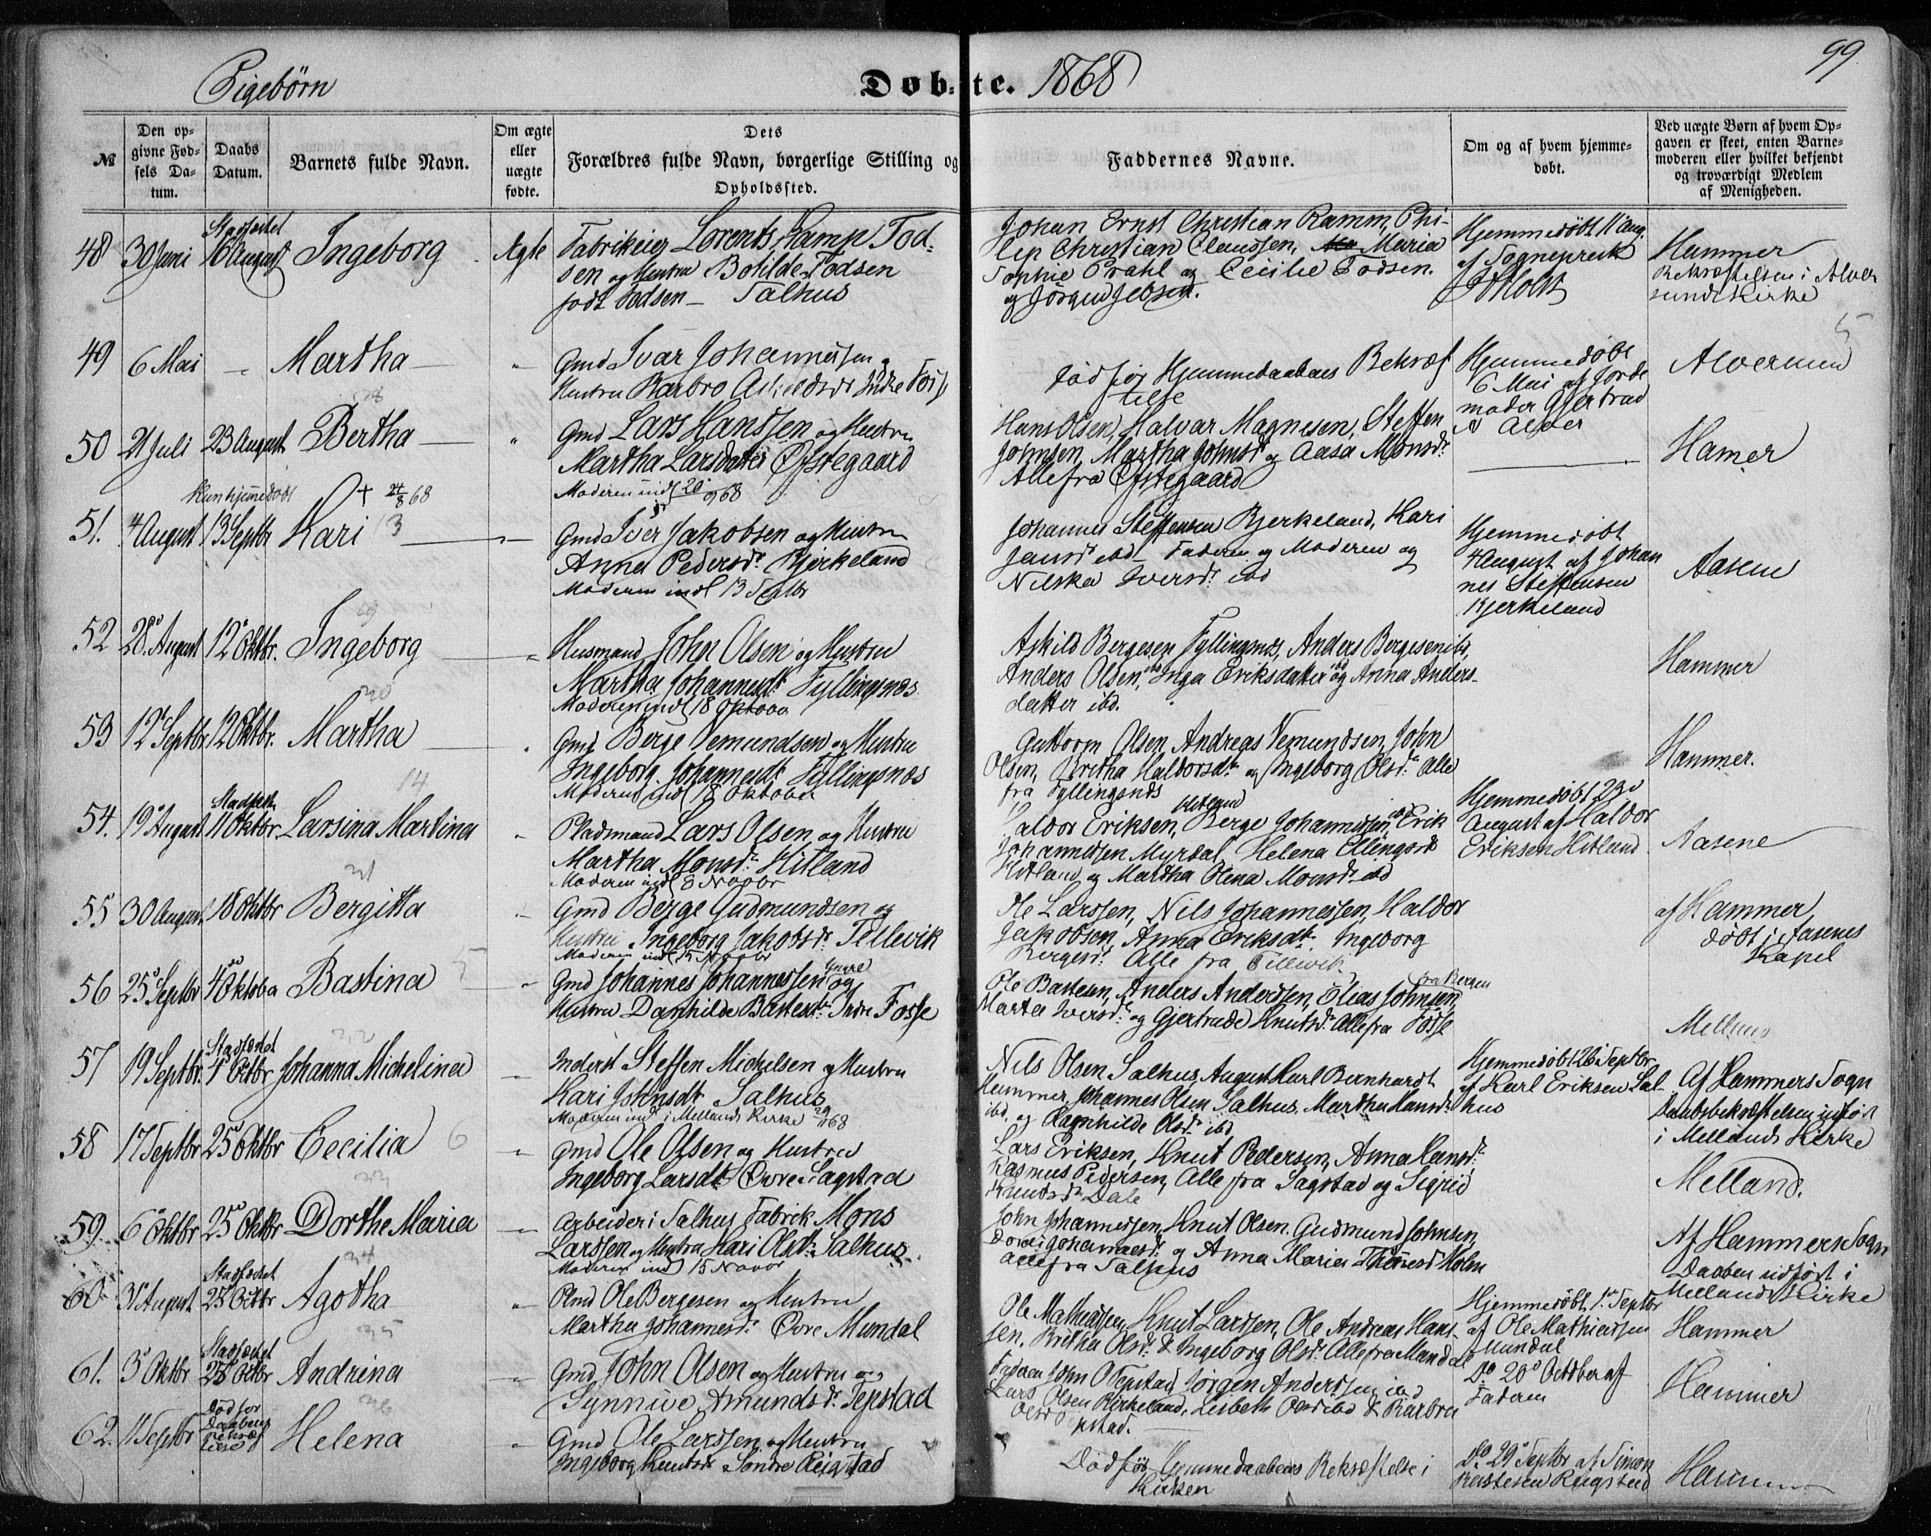 99
Pigebørn
Døbte. 1868
№
Den op-
givne Fød-
sels Da-
tum.
Daabs
Datum.
Barnets fulde Navn.
Om ægte
eller
uægte
fødte.
Dets
Forældres fulde Navn, borgerlige Stilling og
Opholdssted.
Faddernes Navne.
Om og af hvem hjemme-
døbt.
Ved uægte Børn af hvem Op-
gaven er skeet, enten Barne-
moderen eller hvilket bekjendt
og troværdigt Medlem
af Menigheden.
48 30 Juni Stadfæstet 16 August Ingeborg Ægte
Fabrikeier Lorents Kamp Fod-
sen og Hustru Botilde Fodsen
født Fodsen – Salhus
Johan Ernst Christian Ramm, Phi-
lip Christian Claussen, Maria
Sophie Prahl og Cecilie Fodsen.
og Jørgen Jebsen.
Hjemmedøbt 11 Aug.
af Sognepresk
Holst
Hammer
Bekræftelsen i Alver
sunds Kirke
49 6 Mai – Martha – "
Gmd Ivar Johannessen og
Hustru Barbro Indre Fosse
død før Hjemmedaabens Bekræf
telse
Hjemmedøbt
6 Mai af Jorde
moder Gjertrud
Alversund
50 21 Juli 23 August Bertha – "
Gmd Lars Hanssen og Hustru
Martha Larsdatter Øfstegaard
Moderen indl 20/9 68
Hans Olsen, Halvar Magnesen, Steffen
Johnsen, Martha Johnsd og Aasa Monsdr
Alle fra Øfstegaard
Hamer
51. 4 August Kun hjemedøbt 13 Septbr Kari + 24/8 68 3
Gmd Iver Jakobsen og Hustru
Anna Pedersdr Bjerkeland
Moderen indl 13 Septbr
Johannes Steffensen Bjerkeland, Kari
Jensdr ibd – Faderen og Moderen og
Nilska Iversdr ibd
Hjemmedøbt
4 August af Johan
nes Steffensen
Bjerkeland
Aasene
52 28 August 12 Oktbr. Ingeborg "
Husmand John Olsen og Hustru
Martha Johannesdr Fyllingsnæs
Moderen indl 18 Oktober
Askild Bergesen Fyllingsnæs, Anders Bergesen ibd,
Anders Olsen, ibd Inga Eriksdatter ibd og Anna Anders-
datter ibd.
Hammer
53 12 Septbr 12 Oktbr. Martha
Gmd Berge Vemundsen og Hustru
Ingeborg Johannesdr Fyllingsnæs
Moderen indl 18 Oktober
Guttorm Olsen, Andreas Vemundsen, John
Olsen, Britha Haldorsdr og Ingeborg Olsdr Alle
fra Fyllingsnæs
Hammer.
54. 19 August Stadfæst 11 Oktbr. Larsina Martina 14
Pladsmand Lars Olsen og Hustru
Martha Monsdr Hitland
Moderen indl 8 Novbr
Haldor Eriksen, Hitland Berge Johannessen ibd, Erik
Johannessen Myrdal, Helena Ellingsdr
Hitland og Martha Olena Monsdr ibd
Hjemmedøbt 23
August af Haldor
Eriksen Hitland
Aasene
55 30 August 18 Oktbr Bergitta
Gmd Berge Gudmundsen og
Hustru Ingeborg Jakobsdr Tellevik
Ole Larssen, Nils Johannessen, Haldor
Jakobsen, Anna Eriksdr. Ingeborg
Bergesdr Alle fra Tellevik
af Hammer
døbt i Aasenes
Kapel
56 25 Septbr 4 Oktober Bastina 5
Gmd Johannes Johannessen Yngre og
Hustru Danhilde Bastesdr Indre Fosse
Ole Bastesen, Anders Andersen, Elias Johnsen, fra Bergen
Marta Iversdr og Gjertrude Knutsdr Alle fra Fosse
Melland
57 19 Septbr. Stadfæstet 1 Octbr Johanna Michelina
Inderst Steffen Michelsen og Hustru
Kari Johnsdr Salhus
Moderen indl i Mellands Kirke 29/11 68
Nils Olsen Salhus, August Karl Bernhardt
Hammer, Johannes Olsen Salhus, Martha Hansdr
ibd og Ragnhilde Olsdr ibd
Hjemmedøbt 26 Septbr
af Karl Eriksen Sal-
hus
Af Hammers Sogn
Daabsbekræftelsen udført
i Mellands Kirke
58 17 Septbr 25 Oktbr Cecilia 6
Gmd Ole Olsen og Hustru
Ingeborg Larsdr Øvre Sagstad
Lars Eriksen, Knut Pedersen, Anna Hansdr
Rasmus Pedersen, Alle fra Sagstad og Sigrid
Knutsdr Dale
Melland.
59. 6 Oktbr 25 Oktbr Dorthe Maria
Arbeider i Salhus Fabrik Mons
Larssen og Hustru Kari Olsdr Salhus.
Moderen indl 15 Novbr
John Johannessen, Knut Olsen, Gudmund Johnsen,
Johannesdr og Anna Maria Holm
alle fra Salhus
Af Hammers Sogn
Daaben udført i
Mellands Kirke
60 31 August Stadfæstet 25 Octbr Agotha
Plmd Ole Bergesen og Hustru
Martha Johannesdr Øvre Mundal
Ole Mathiessen, Knut Larssen, Ole Andreas Hans-
sen, Britha Olsdr & Ingeborg Olsdr Alle fra Mundal
Hjemmedøbt 1 Septbr
af Ole Mathiessen
Mundal
Hammer
61. 3 Oktbr Stadfæstet 25 Octbr Andrina
Gmd John Olsen og Hustru
Synnive Amundsdr Tepstad
Faderen John O Tepstad, Jørgen Anderssen ibd
Lars Olsen Birkeland, Lisbeth Olsdr ibd & Barbro
Olsdr
Do 20 October af
Faderen
Hammer
62. 11 Septbr Død før Daabens Bekræf telse Helena
Gmd Ole Larssen og Hustru
Ingeborg Knutsdr Søndre Reigstad
Død før Hjemmedaabens Bekræftelse i
Kirken
Do 29 Septbr af Simon
Bastesen Reigstad
Hammer